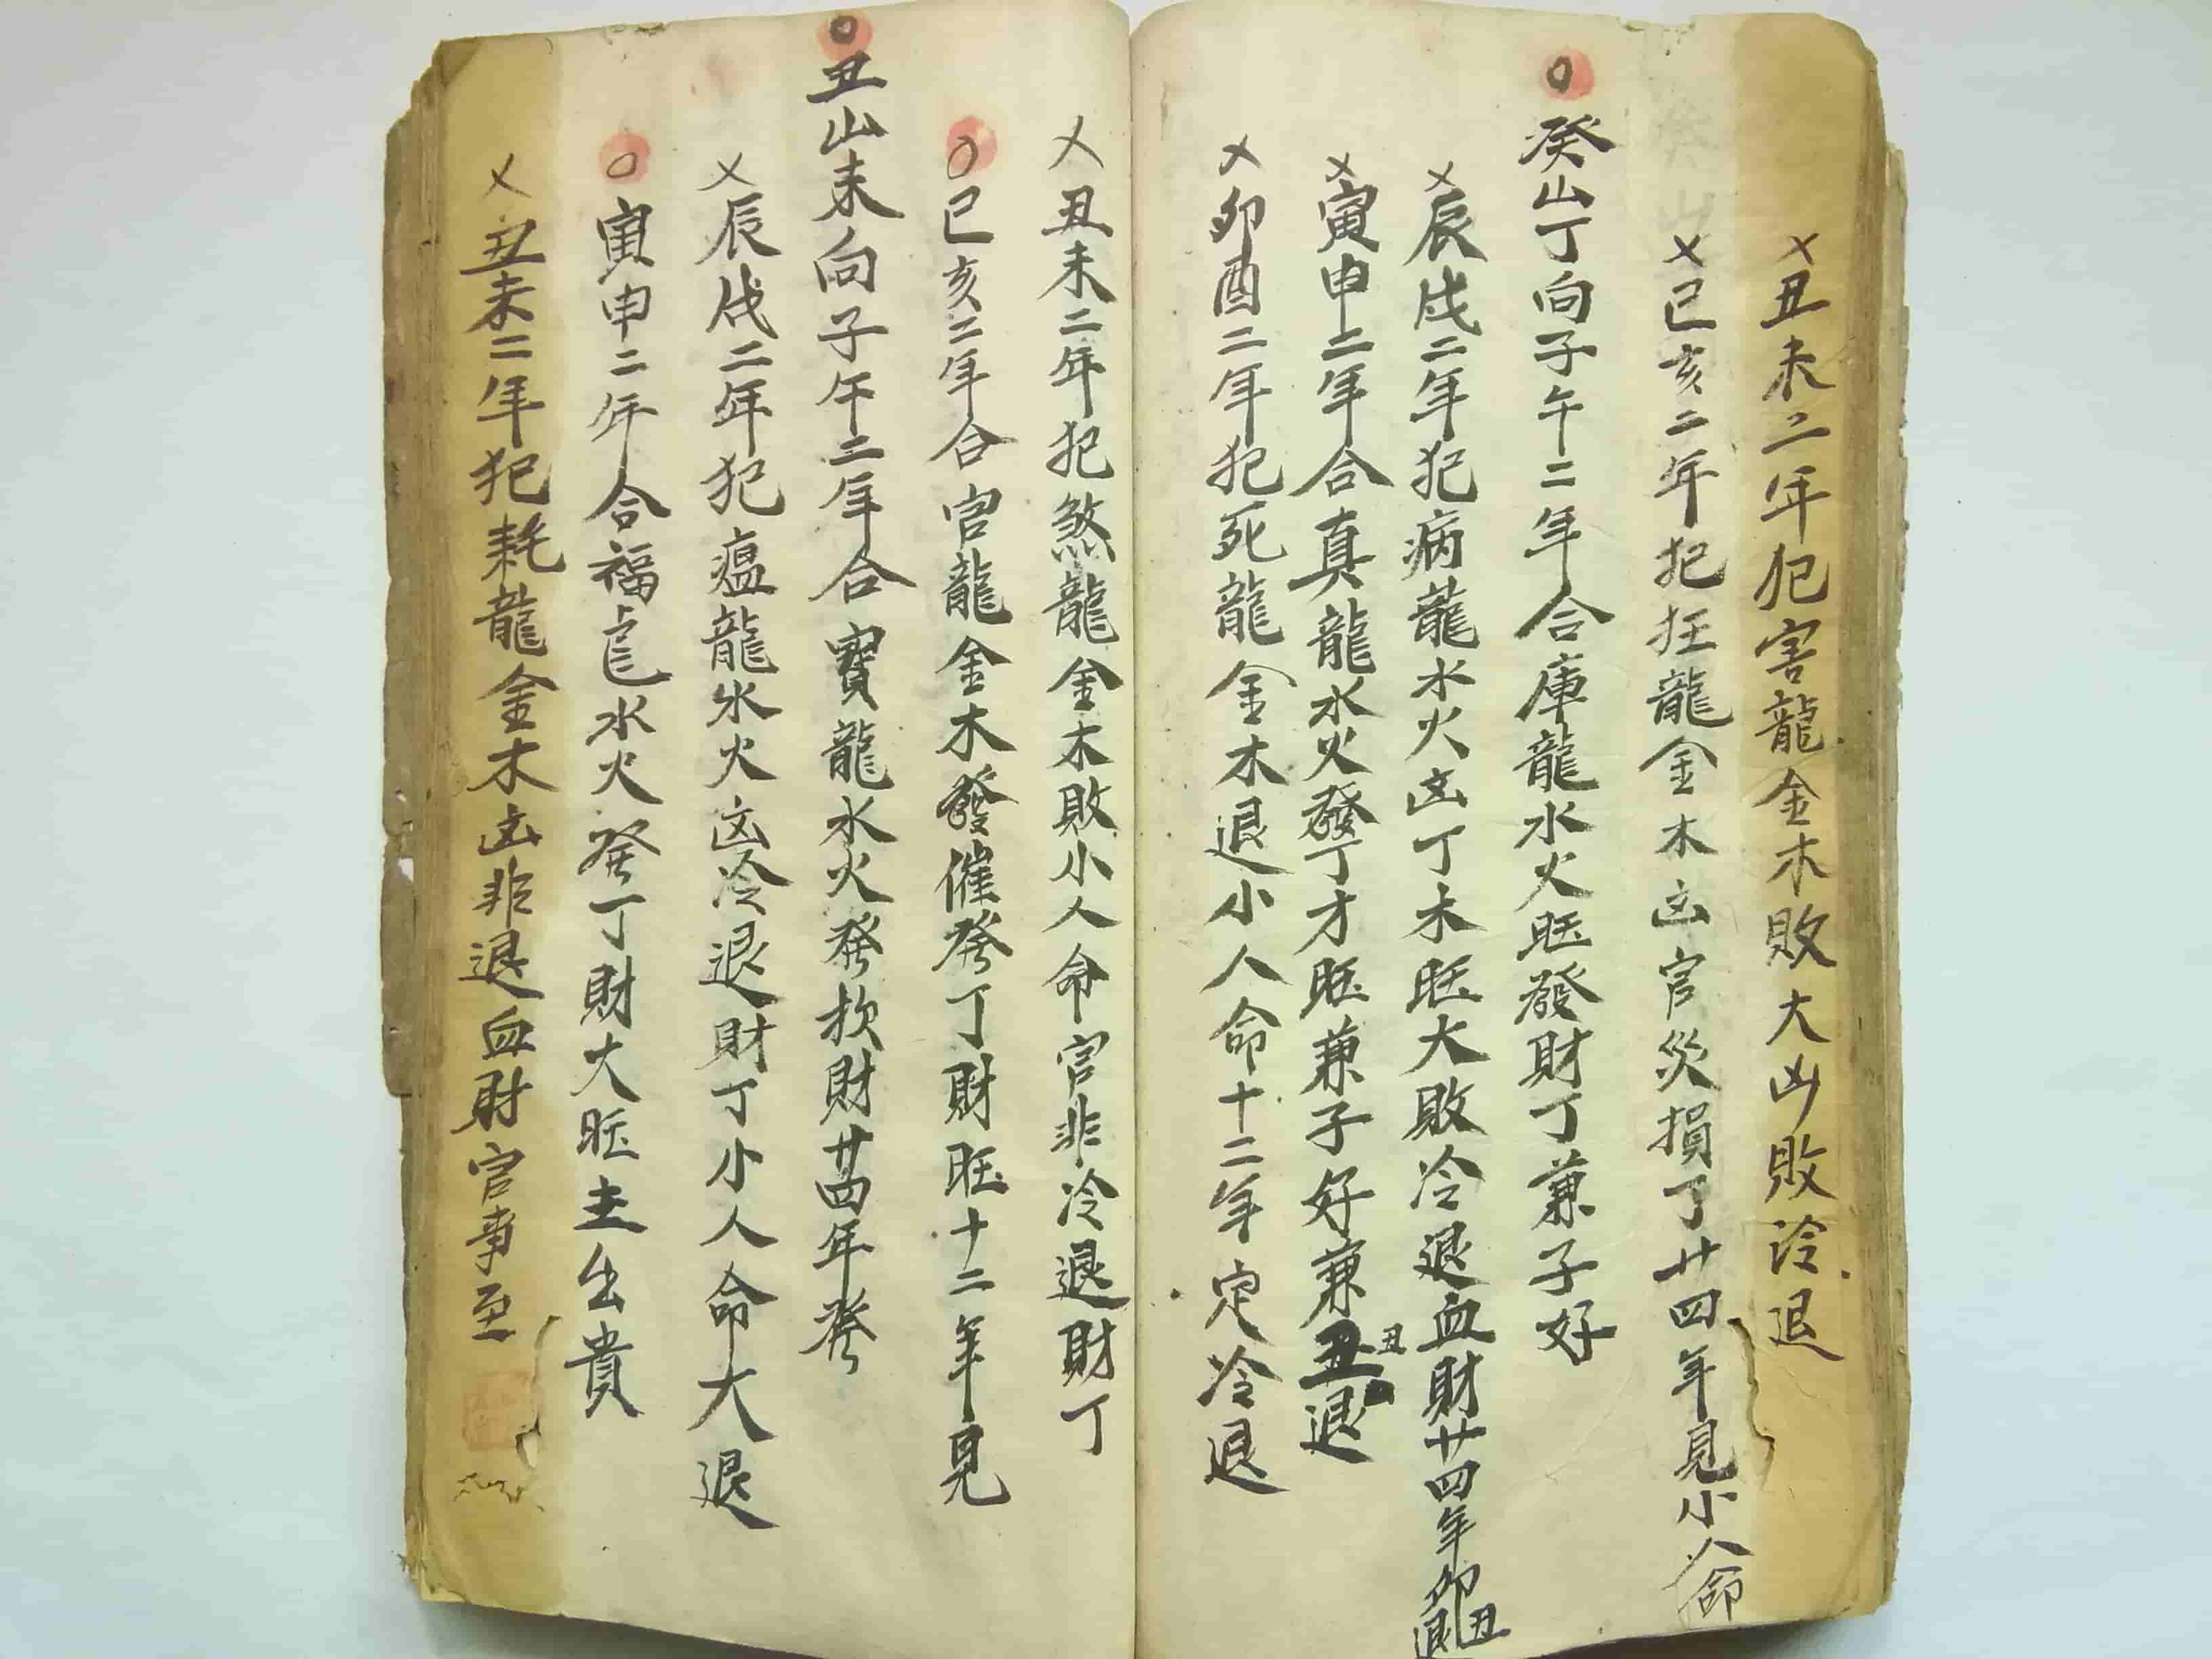 乄丑未二年犯害龍金木敗大凶敗冷退
乄巳亥二年犯狂龍金木凶官災損丁廿四年見小人命
〇癸山丁向子午二年合庫龍水火旺發財丁兼子好
乄辰戌二年犯病龍水火凶丁木旺大敗冷退血財廿四年卯丑退
乄寅申二年合真龍水火發丁才旺兼子好兼丑退
丑
乄卯酉二年犯死龍金木退小人命十二年定冷退
乄丑未二年犯煞龍金木敗小人命官非冷退財丁
〇巳亥二年合官龍金木發催發丁財旺十二年見
〇丑山未向子午二年合寶龍水火發財廿四年發
乄辰戌二年犯瘟龍水火凶冷退財丁小人命大退
〇寅申二年合福水火發丁財大旺主出貴
乄丑未二年犯耗龍金木凶非退血財官事至